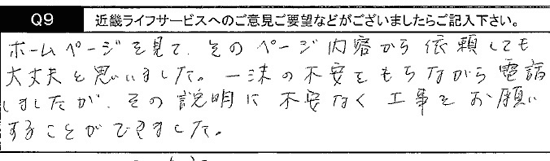 Q9 近畿ライフサービスへのご意見ご要望などがございましたらご記入下さい。
ホームページを見て、そのページ内容から依頼しても
大丈夫と思いました。一沫の不安をもちながら電話
しましたが、その説明に不安なく工事をお願い
することができました。